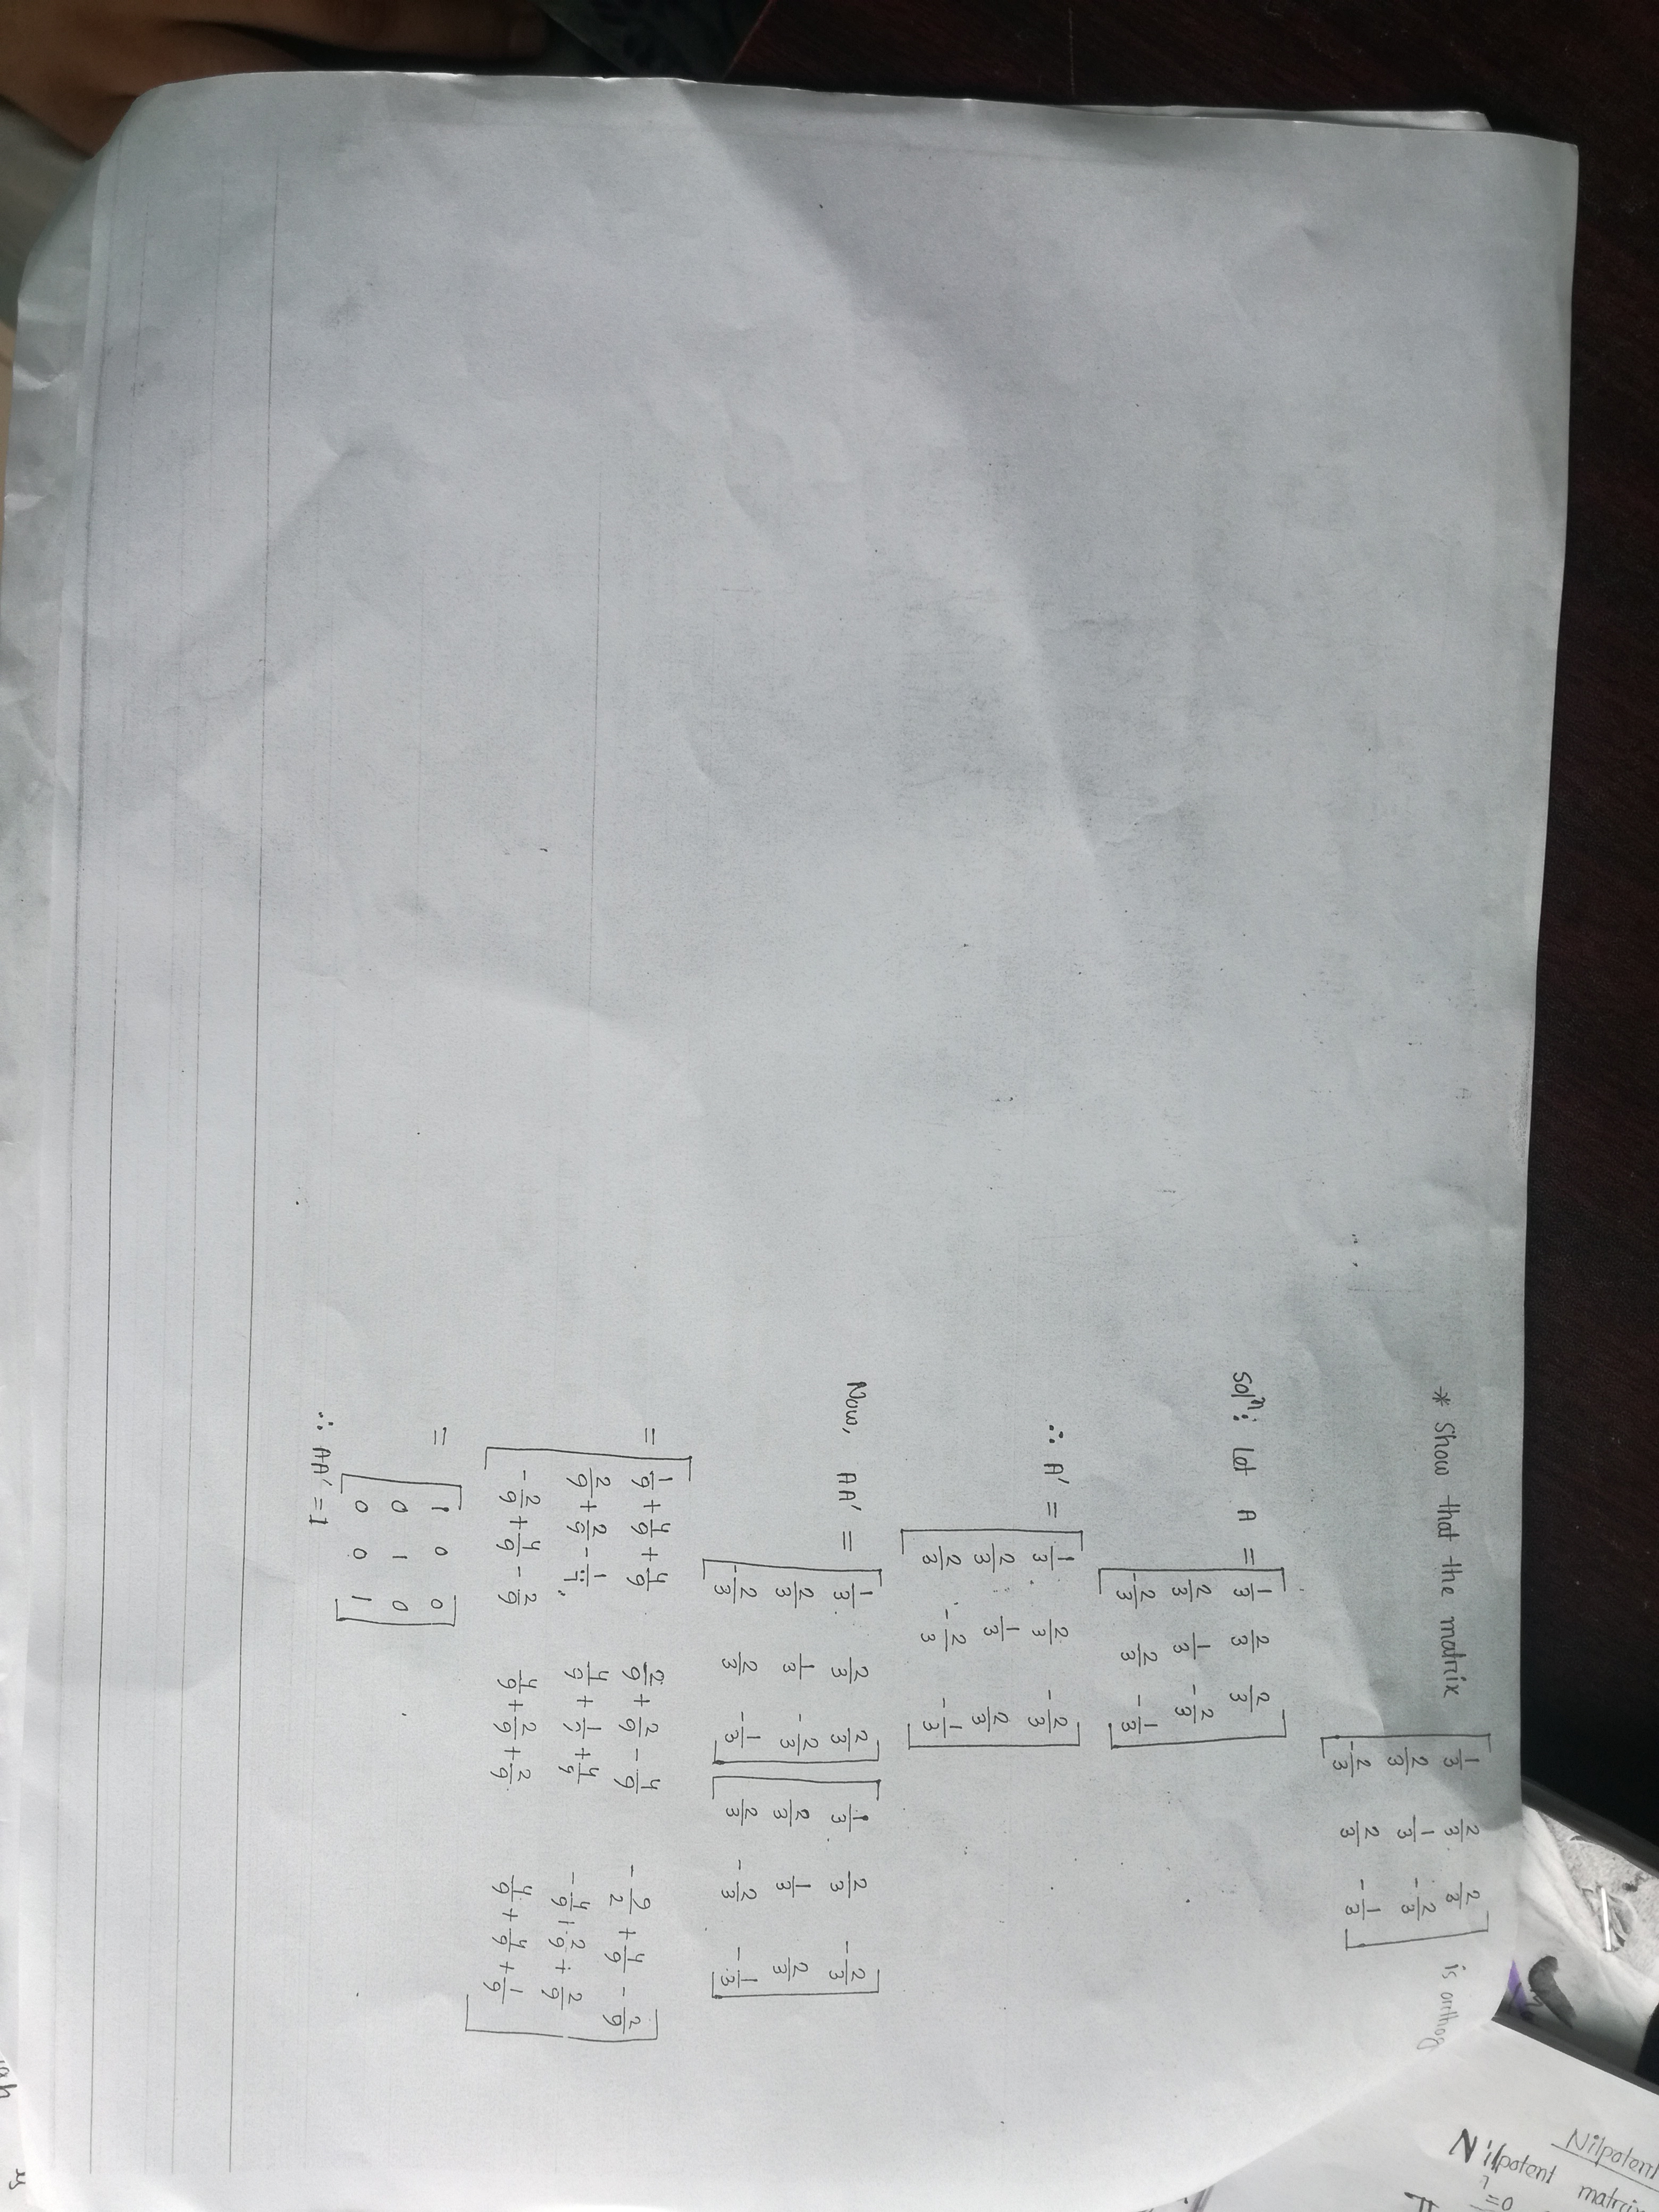 * Show that the matrix [1/3 2/3 2/3; 2/3 1/3 -2/3; -2/3 2/3 -1/3] is orthog
Solⁿ: Let A = [1/3 2/3 2/3; 2/3 1/3 -2/3; -2/3 2/3 -1/3]
∴ A' = [1/3 2/3 -2/3; 2/3 1/3 2/3; 2/3 -2/3 -1/3]
Now, AA' = [1/3 2/3 2/3; 2/3 1/3 -2/3; -2/3 2/3 -1/3] [1/3 2/3 -2/3; 2/3 1/3 2/3; 2/3 -2/3 -1/3]
= [1/9+4/9+4/9 2/9+2/9-4/9 -9/2+4/9-2/9; 2/9+2/9- 4/9+1/9+4/9 -4/9+2/9+2/9; -2/9+4/9-2/9 4/9+2/9+2/9 4/9+4/9+1/9]
= [1 0 0; 0 1 0; 0 0 1]
∴ AA' = I
Nilpotent
Nilpotent matrix
=0